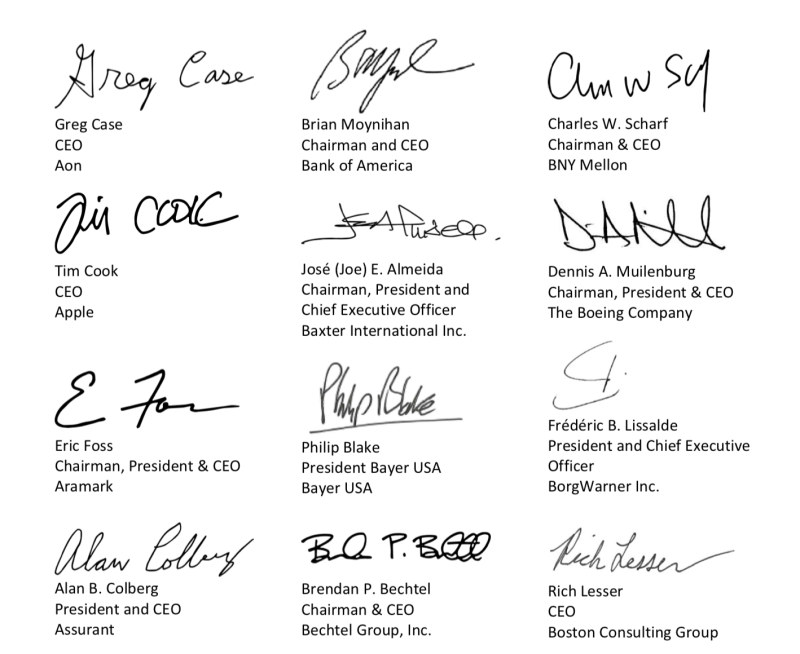 Greg Case
Greg Case
CEO
Aon
Brian Moynihan
Chairman and CEO
Bank of America
Charles W. Scharf
Chairman & CEO
BNY Mellon
Tim Cook
Tim Cook
CEO
Apple
José (Joe) E. Almeida
Chairman, President and
Chief Executive Officer
Baxter International Inc.
Dennis A. Muilenburg
Chairman, President & CEO
The Boeing Company
E Foss
Eric Foss
Chairman, President & CEO
Aramark
Philip Blake
Philip Blake
President Bayer USA
Bayer USA
Frédéric B. Lissalde
President and Chief Executive
Officer
BorgWarner Inc.
Alan Colberg
Alan B. Colberg
President and CEO
Assurant
Brendan P. Bechtel
Chairman & CEO
Bechtel Group, Inc.
Rich Lesser
Rich Lesser
CEO
Boston Consulting Group